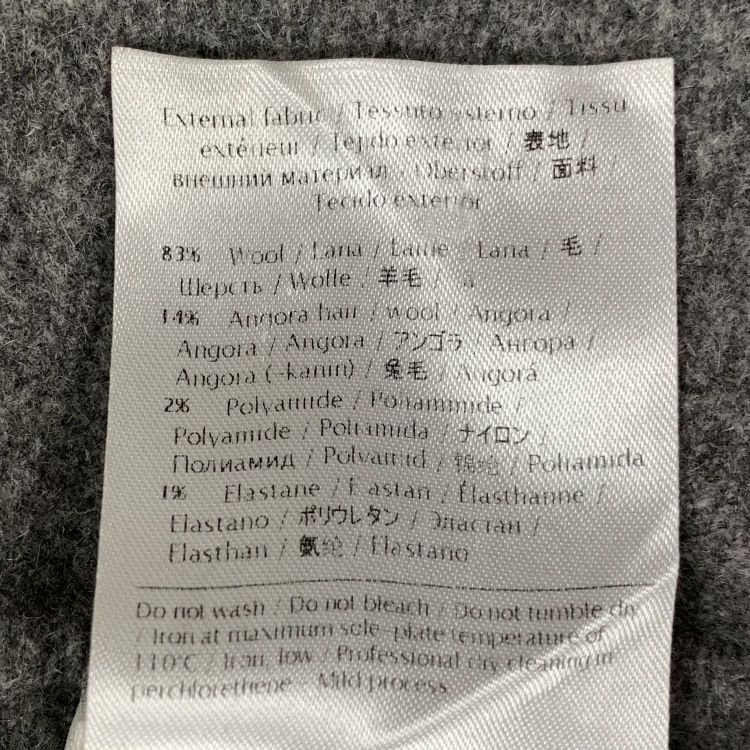 External fabric / Tessuto esterno / Tissu
extérieur / Tejido exterior / 表地 /
внешний материал - Oberstoff / 面料 /
Tecido exterior
83% Wool / Lana / Laine / Lana / 毛 /
Шерсть / Wolle / 羊毛 /
14% Angora hair / wool / Angora /
Angora / Angora / アンゴラ / Ангора /
Angora (-kanin) / 兔毛 / Angorá
2% Polyamide / Poliammide /
Polyamide / Poliamida / ナイロン /
Полиамид / Polyamid / 锦纶 / Poliamida
1% Elastane / Elastan / Élasthanne /
Elastano / ポリウレタン / Эластан /
Elasthan / 氨纶 / Elastano
Do not wash / Do not bleach / Do not tumble dry
/ Iron at maximum sole-plate temperature of
110°C / Iron, low / Professional dry cleaning in
perchlorethene - Mild process